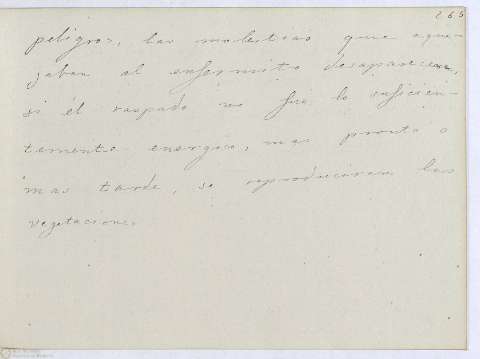 265
peligros, las molestias que aque-
jaban al enfermito desaparecen,
si él raspado no fué lo suficien-
temente energico, mas pronto o
mas tarde, se reproduciran las
vegetaciones.